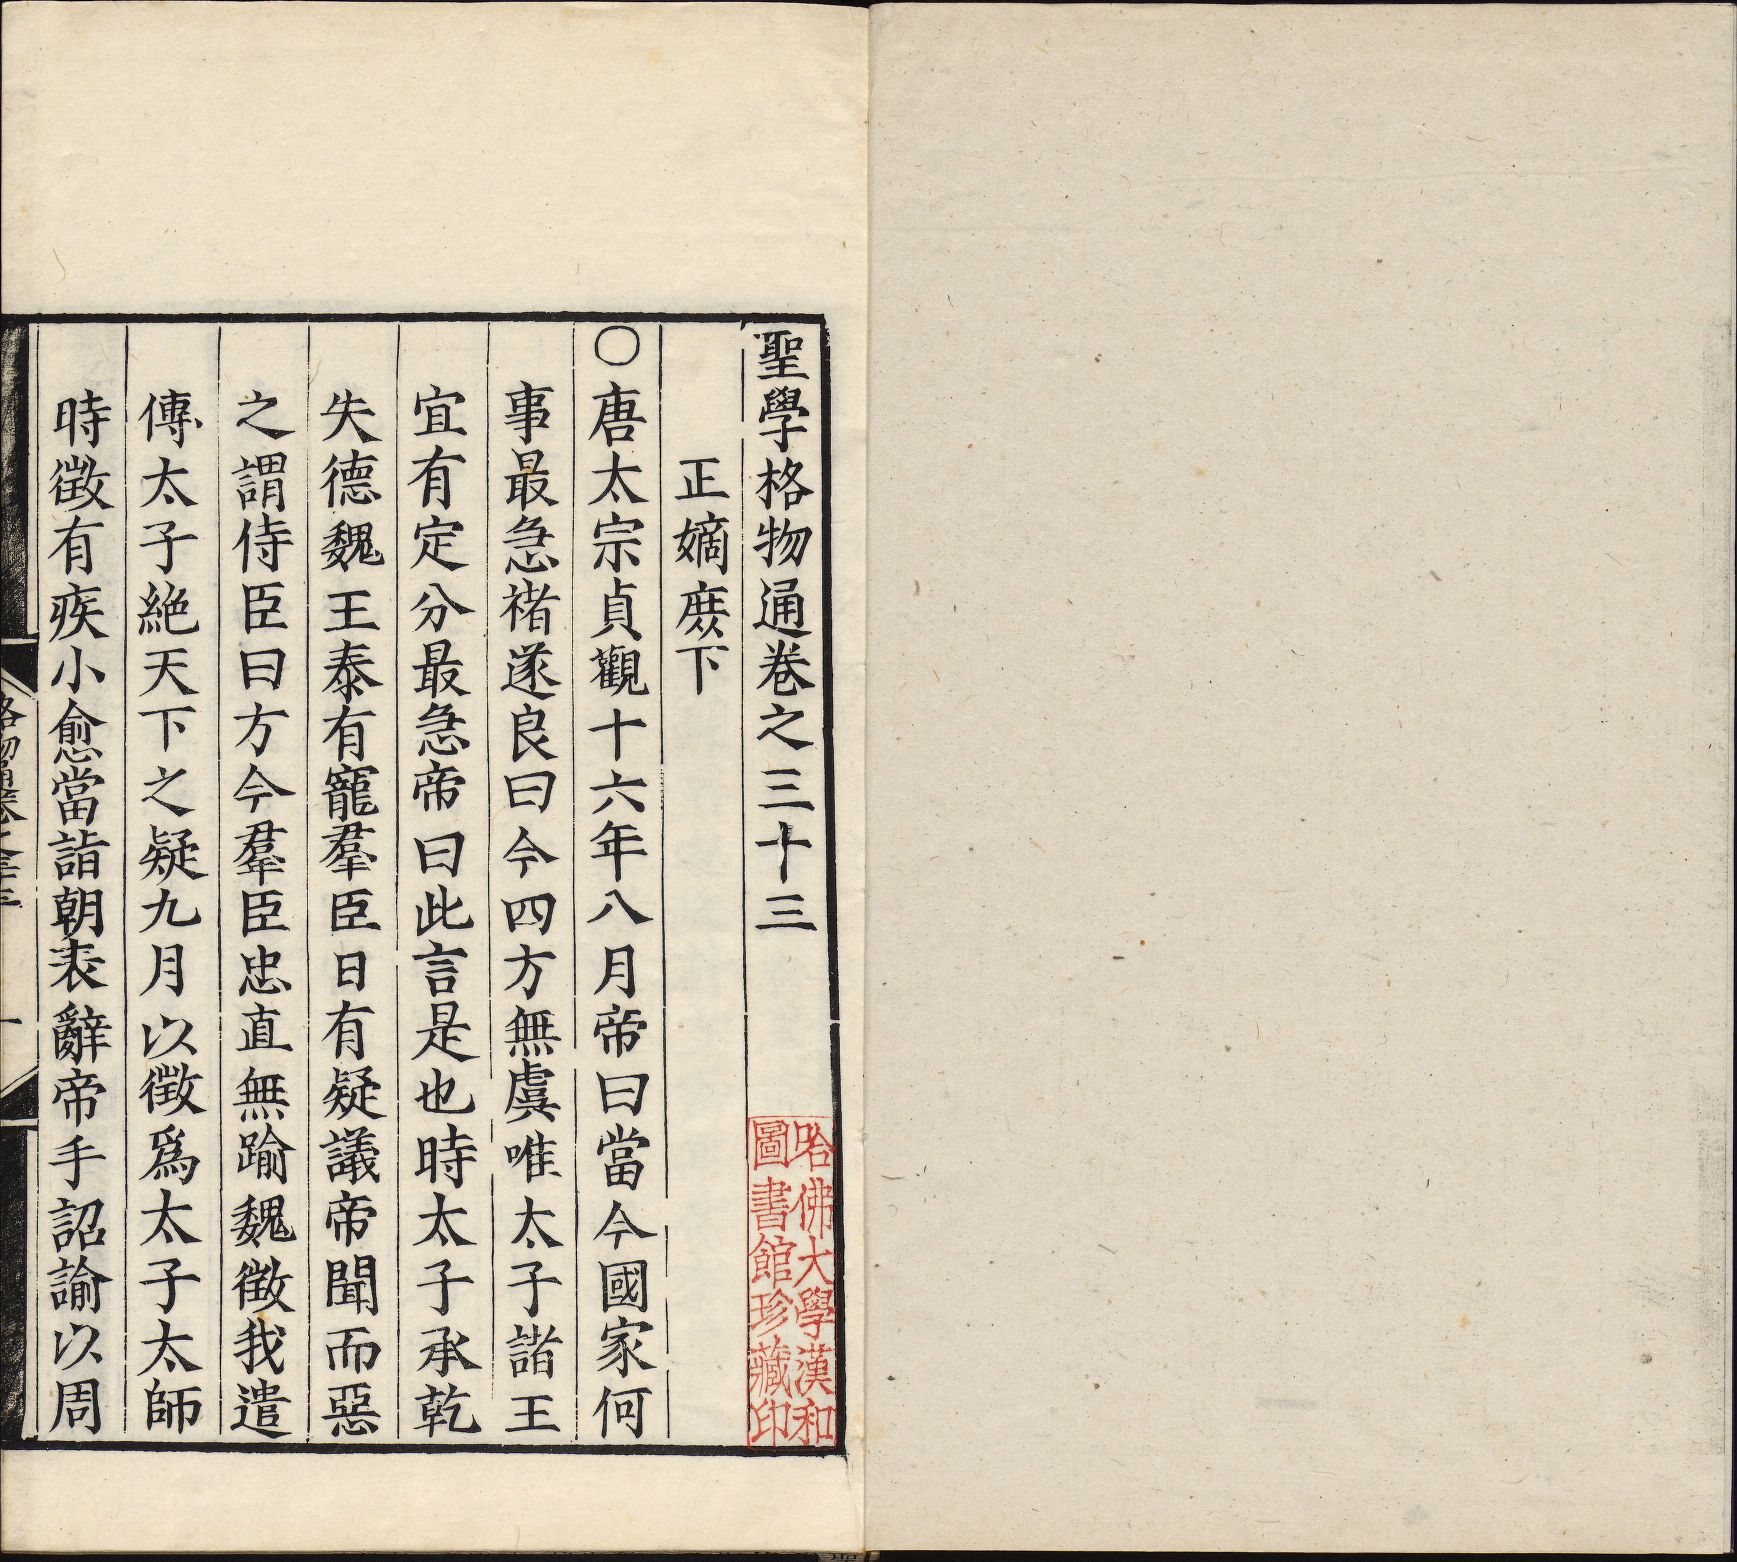 聖學格物通卷之三十三
正嫡庶下
〇唐太宗貞觀十六年八月帝曰當今國家何
事最急褚遂良曰今四方無虞唯太子諸王
宜有定分最急帝曰此言是也時太子承乾
失德魏王泰有寵羣臣日有疑議帝聞而惡
之謂侍臣曰方今羣臣忠直無踰魏徵我遣
傅太子絶天下之疑九月以徵爲太子太師
時徵有疾小愈當詣朝表辭帝手詔諭以周
哈佛大學漢和
圖書館珍藏印